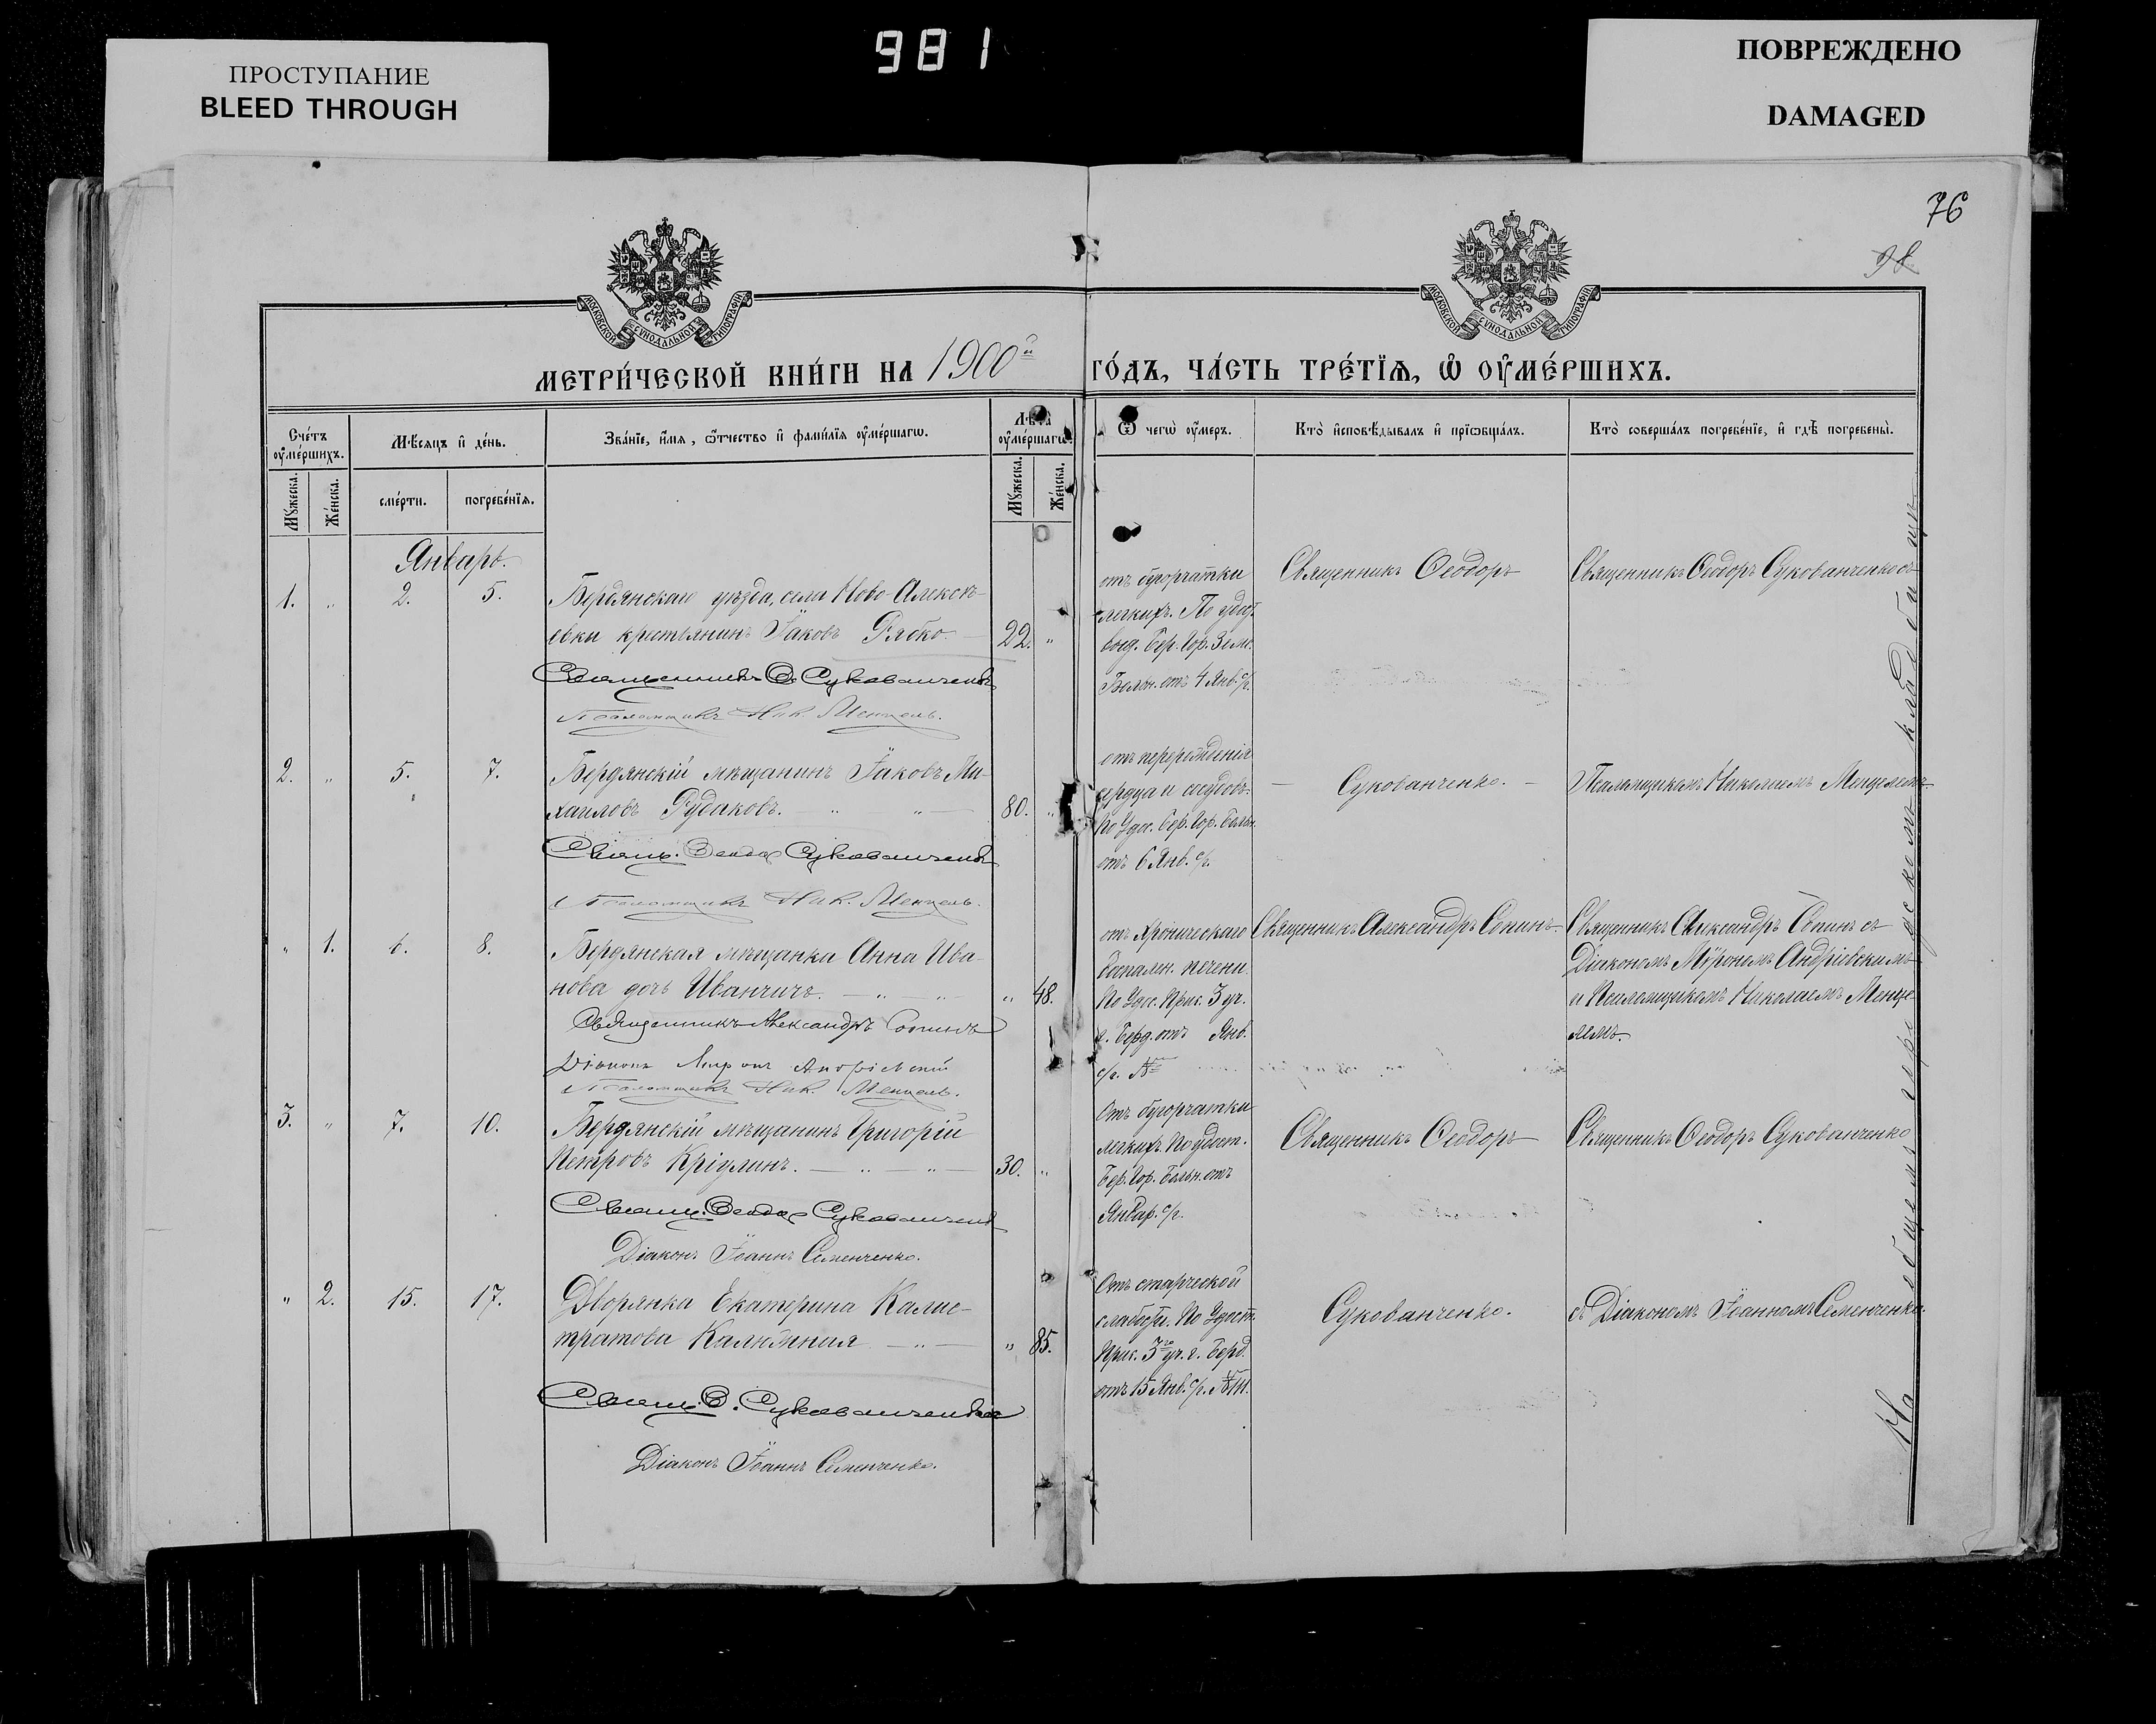 981
ПРОСТУПАНИЕ
BLEED THROUGH
ПОВРЕЖДЕНО
DAMAGED
76
98
МОСКОВСКОЙ СУНОДАЛЬНОЙ ТИПОГРАФІИ
МОСКОВСКОЙ СУНОДАЛЬНОЙ ТИПОГРАФІИ
МЕТРИ́ЧЕСКОЙ КНИ́ГИ НА 1900й ГО́ДЪ, ЧА́СТЬ ТРЕ́ТЇѦ, Ѡ ОУ҆МЕ́РШИХЪ.
Сче́тъ оу҆ме́ршихъ.
Мѣ́сяцъ и҆ де́нь.
Зва́нїе, и҆́мѧ, ѻ҆́тчество и҆ фами́лїѧ оу҆ме́ршагѡ.
Лѣ́та оу҆ме́ршагѡ.
Ѿ чегѡ̀ оу҆́меръ.
Кто̀ и҆сповѣ́дывалъ и҆ прїѡбща́лъ.
Кто̀ соверша́лъ погребе́нїе, и҆ гдѣ̀ погребены̀.
Мꙋ́жеска.
Же́нска.
сме́рти.
погребе́нїѧ.
Мꙋ́жеска.
Же́нска.
Январь.
1. " 2. 5.
Бердянскаго уѣзда, села Ново-Алексѣ-
евки крестьянинъ Іаковъ Рябко. 22. "
Священникъ Ѳ. Сукованченко
Псаломщикъ Ник. Менцель.
отъ бугорчатки
легкихъ. По удост.
Бер. Гор. Земс.
Больн. отъ 4 Янв. с/г.
Священникъ Ѳеодоръ
Священникъ Ѳеодоръ Сукованченко съ
2. " 5. 7.
Бердянскій мѣщанинъ Іаковъ Ми-
хаиловъ Рудаковъ. 80. "
Свящ. Ѳеодор Сукованченко
Псаломщикъ Ник. Менцель.
отъ перерожденія
сердца и сосудовъ.
По Удос. Бер. Гор. Больн.
отъ 6 Янв. с/г.
Сукованченко.
Псаломщикомъ Николаемъ Менцелемъ
" 1. 6. 8.
Бердянская мѣщанка Анна Ива-
нова дочь Иванчичъ. " 48.
Священникъ Александръ Сопинъ
Діаконъ Миронъ Андріевскій
Псаломщикъ Ник. Менцель.
отъ хроническаго
воспален. печени.
По Удос. Прис. 3 уч.
г. Берд. отъ Янв.
с/г. №
Священникъ Александръ Сопинъ
Священникъ Александръ Сопинъ съ
Діакономъ Мѵрономъ Андріевскимъ
и Псаломщикомъ Николаемъ Менце-
лемъ.
3. " 7. 10.
Бердянскій мѣщанинъ Григорій
Петровъ Кріулинъ. 30. "
Свящ. Ѳеодор Сукованченко
Діаконъ Іоаннъ Семенченко.
Отъ бугорчатки
легкихъ. По удост.
Бер. Гор. Больн. отъ
Январ. с/г.
Священникъ Ѳеодоръ
Священникъ Ѳеодоръ Сукованченко
" 2. 15. 17.
Дворянка Екатерина Калис-
тратова Калюжная " 85.
Свящ. Ѳ. Сукованченко
Діаконъ Іоаннъ Семенченко.
Отъ старческой
слабости. По Удост.
Прис. 3го уч. г. Берд.
отъ 15 Янв. с/г. №
Сукованченко.
съ Діакономъ Іоанномъ Семенченко.
На общемъ городскомъ кладбищѣ